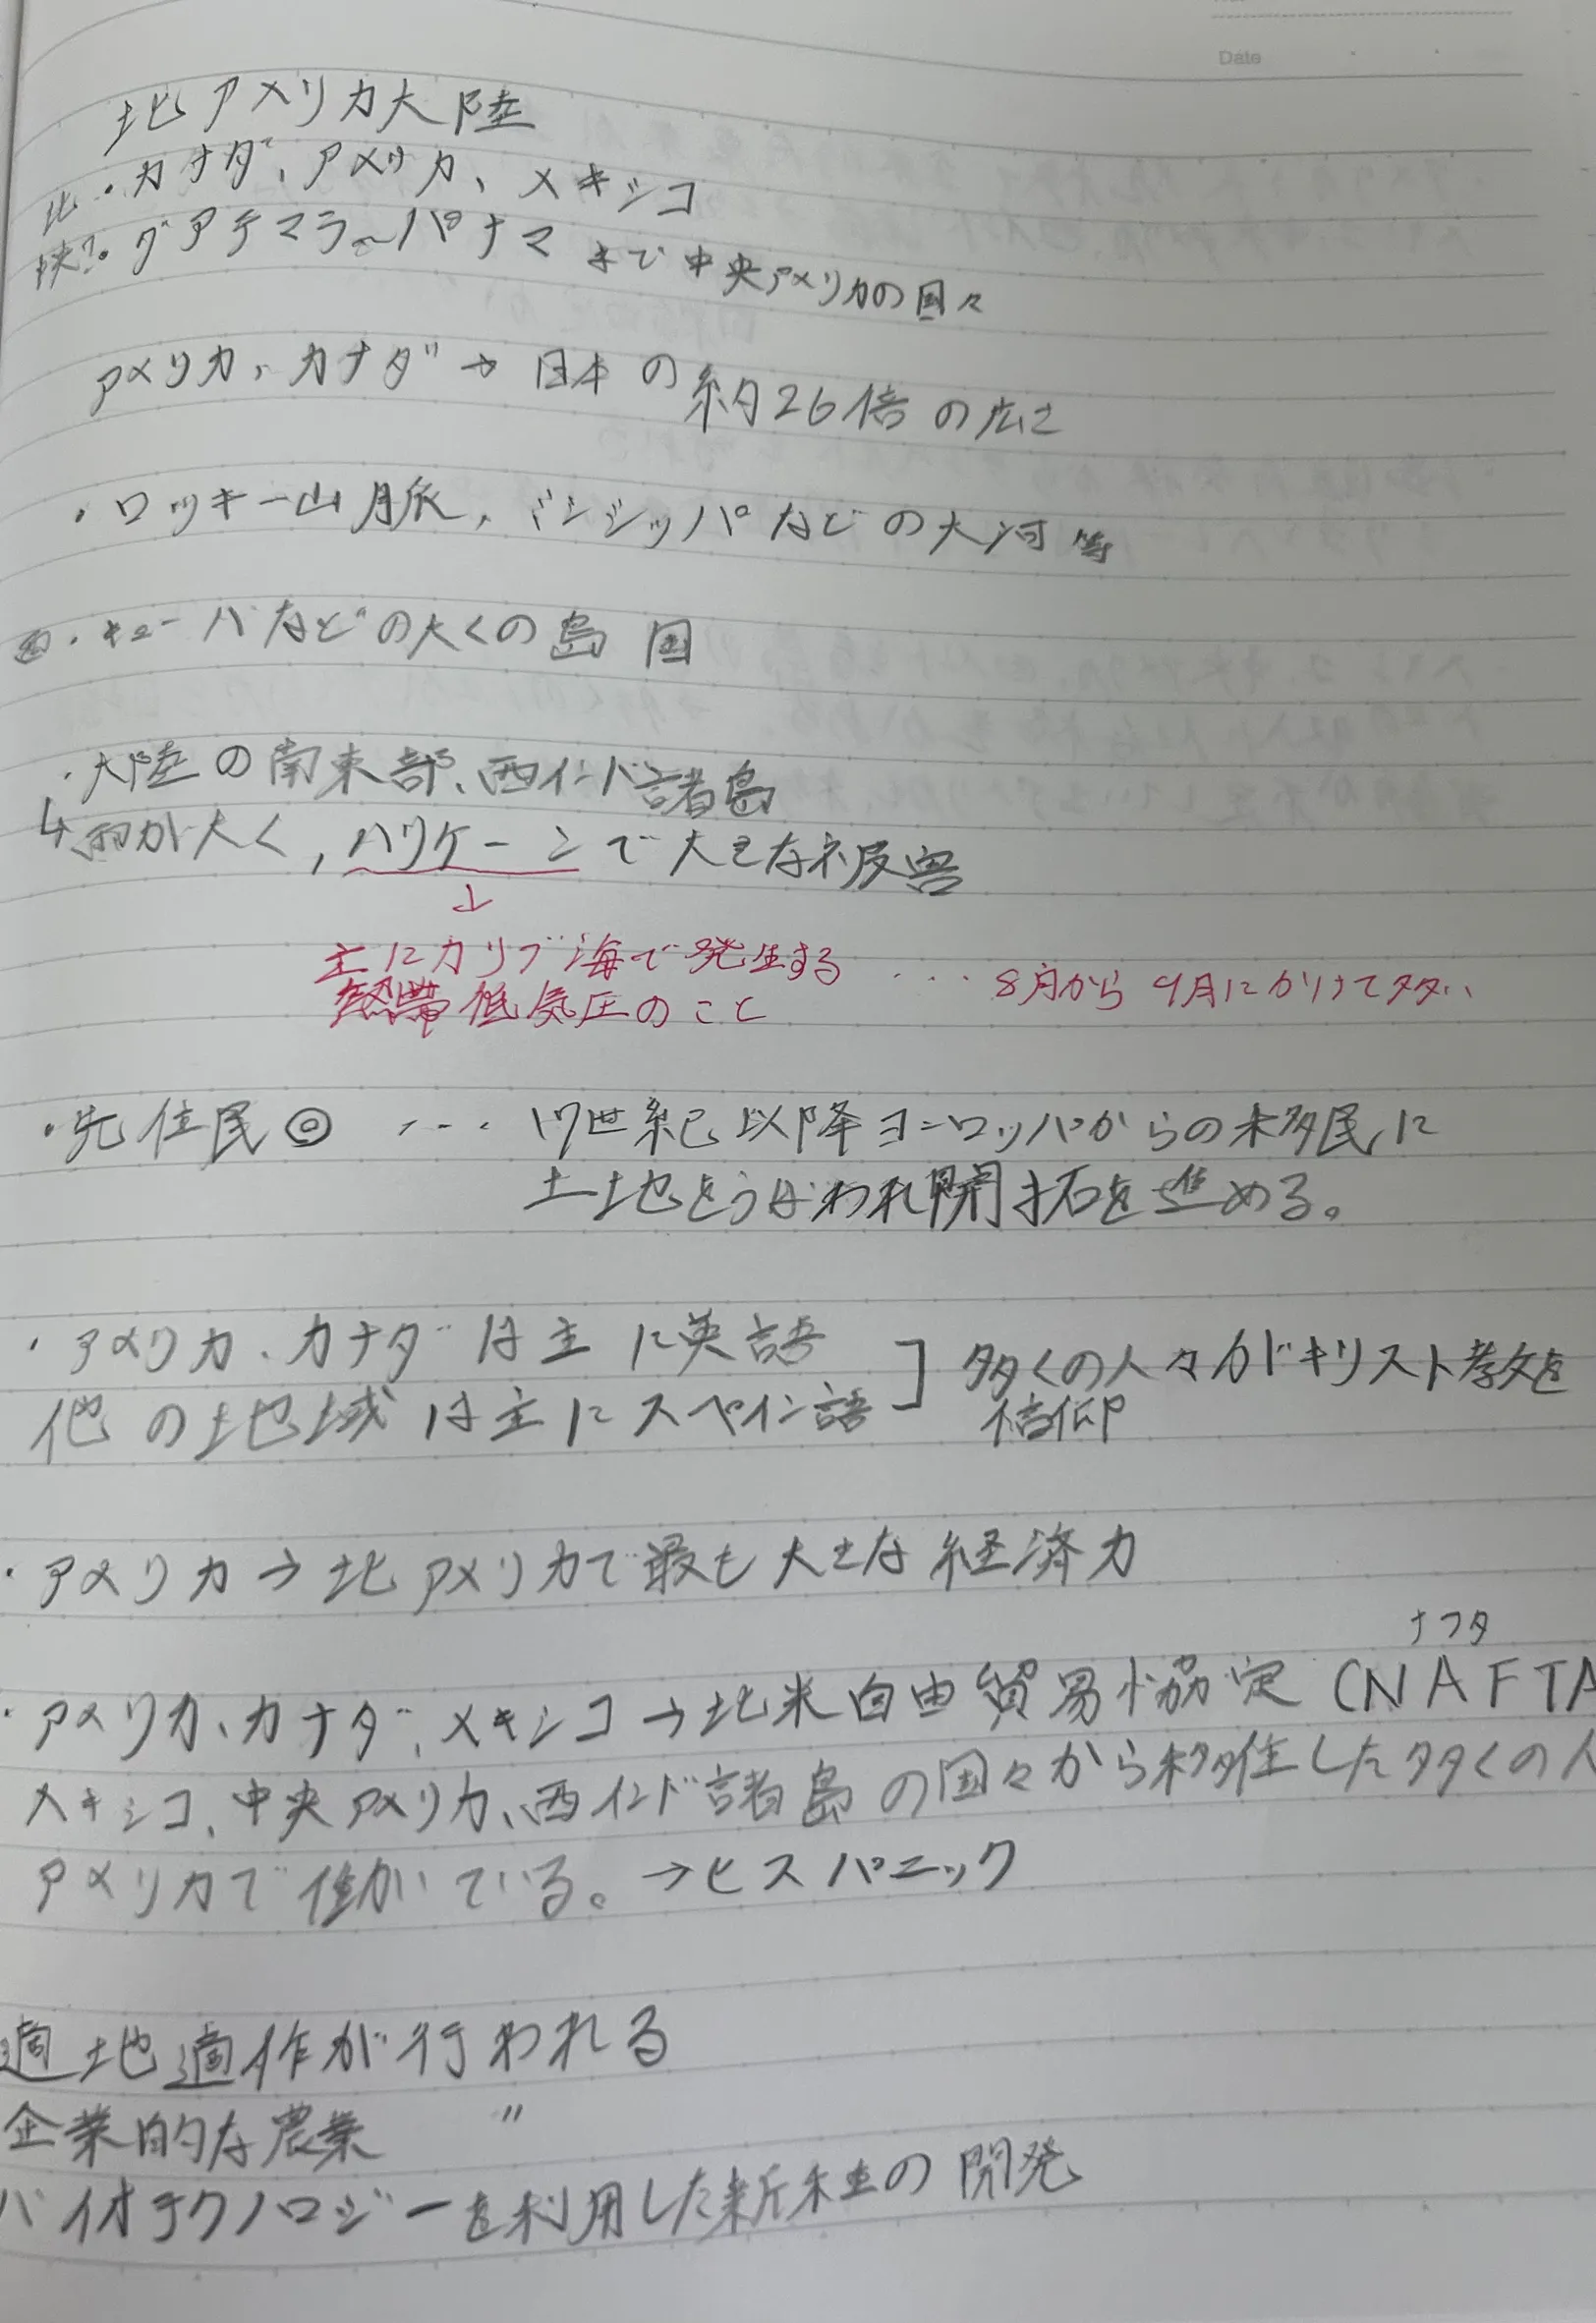 Date
北アメリカ大陸
北・カナダ、アメリカ、メキシコ
・グアテマラ〜パナマまで中央アメリカの国々
アメリカ、カナダ→日本の約26倍の広さ
・ロッキー山脈,ミシシッパなどの大河等
・キューバなどの大くの島国
・大陸の南東部、西インド諸島
↳雨が大く,ハリケーンで大きな被害
↓
主にカリブ海で発生する ・・・8月から9月にかけて多い
熱帯低気圧のこと
・先住民◎ ・・・ 17世紀以降ヨーロッパからの移民に
土地をうばわれ開拓を進める。
・アメリカ、カナダは主に英語
他の地域は主にスペイン語 ] 多くの人々がキリスト教を
信仰
・アメリカ→北アメリカで最も大きな経済力
ナフタ
・アメリカ、カナダ、メキシコ→北米自由貿易協定(NAFTA
メキシコ、中央アメリカ、西インド諸島の国々から移住した多くの人
アメリカで働いている。→ヒスパニック
適地適作が行われる
企業的な農業 〃
バイオテクノロジーを利用した新種の開発